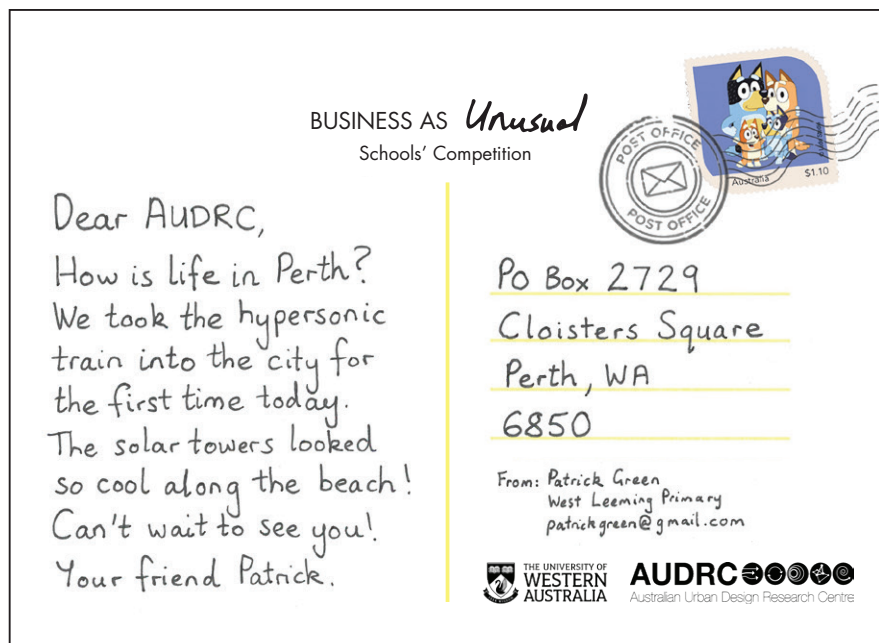 BUSINESS AS Unusual
Schools' Competition
POST OFFICE
POST OFFICE
Australia
$1.10
Dear AUDRC,
How is life in Perth?
We took the hypersonic
train into the city for
the first time today.
The solar towers looked
so cool along the beach!
Can't wait to see you!
Your friend Patrick.
PO Box 2729
Cloisters Square
Perth, WA
6850
From: Patrick Green
West Leeming Primary
patrickgreen@gmail.com
THE UNIVERSITY OF
WESTERN
AUSTRALIA
AUDRC
Australian Urban Design Research Centre